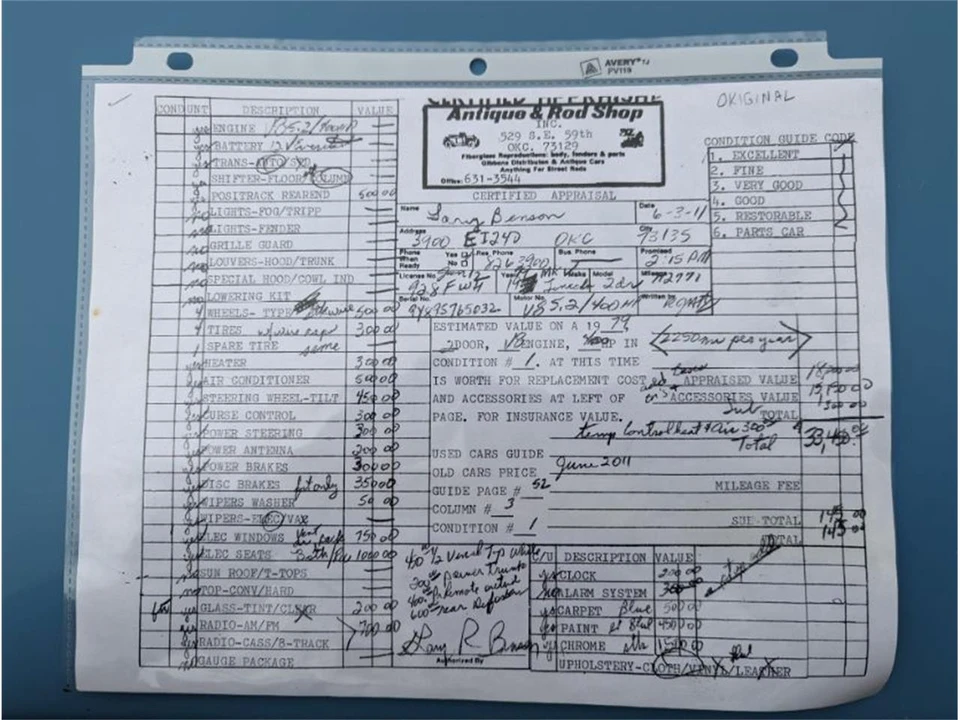 AVERY
PV119
ORIGINAL
COND UNT DESCRIPTION VALUE
yes ENGINE V8 5.2/400HP
yes BATTERY 12 V
yes TRANS-AUTO/STD
SHIFTER-FLOOR/COLUMN
POSITRACK REAREND 500 00
no LIGHTS-FOG/TRIPP
no LIGHTS-FENDER
no GRILLE GUARD
no LOUVERS-HOOD/TRUNK
no SPECIAL HOOD/COWL IND
no LOWERING KIT
4 WHEELS- TYPE wire 500 00
4 TIRES 300 00
1 SPARE TIRE same
yes HEATER 300 00
yes AIR CONDITIONER 500 00
yes STEERING WHEEL-TILT 450 00
yes CURSE CONTROL 300 00
yes POWER STEERING 300 00
yes POWER ANTENNA 200 00
yes POWER BRAKES 300 00
yes DISC BRAKES frt only 350 00
yes WIPERS WASHER 50 00
yes WIPERS-ELEC/VAX
yes ELEC WINDOWS 750 00
yes ELEC SEATS Both 1000 00
no SUN ROOF/T-TOPS
no TOP-CONV/HARD
yes GLASS-TINT/CLEAR 200 00
yes RADIO-AM/FM
yes RADIO-CASS/8-TRACK 700 00
no GAUGE PACKAGE
CERTIFIED APPRAISAL
Antique & Rod Shop
INC.
529 S.E. 59th
OKC. 73129
Fiberglass Reproductions: body, fenders & parts
Gibbons Distributer & Antique Cars
Anything For Street Rods
Office: 631-3544
CERTIFIED APPRAISAL
Name Lary Benson Date 6-3-11
Address 3900 E I240 OKC City 73135
Phone When Ready Yes No Res. Phone 826 3900 Bus. Phone Promised 2:15 PM
License No. 928 FWH Year 79 Make Model Linc 2dr Mileage 72771
Serial No. 9Y89S765032 Motor No. V8 5.2/400 Written by
ESTIMATED VALUE ON A 19 79
2 DOOR, V8 ENGINE, HP IN <2250 mi per year>
CONDITION # 1. AT THIS TIME
IS WORTH FOR REPLACEMENT COST APPRAISED VALUE
AND ACCESSORIES AT LEFT OF ACCESSORIES VALUE
PAGE. FOR INSURANCE VALUE. Sub TOTAL
temp Control heat & air 300 00
Total 33,450.00
USED CARS GUIDE
OLD CARS PRICE June 2011
GUIDE PAGE # 52 MILEAGE FEE
COLUMN # 3
CONDITION # 1 SUB-TOTAL 145 00
TOTAL 145 00
400 00 1/2 Vinyl Top White
Power Trunk
Remote
600 00 rear Defroster
Lary R Benson
Authorized By
CONDITION GUIDE CODE
1. EXCELLENT
2. FINE
3. VERY GOOD
4. GOOD
5. RESTORABLE
6. PARTS CAR
C/U DESCRIPTION VALUE
yes CLOCK 200 00
no ALARM SYSTEM
yes CARPET Blue 500 00
yes PAINT 4500 00
yes CHROME 1500 00
UPHOLSTERY-CLOTH/VINYL/LEATHER